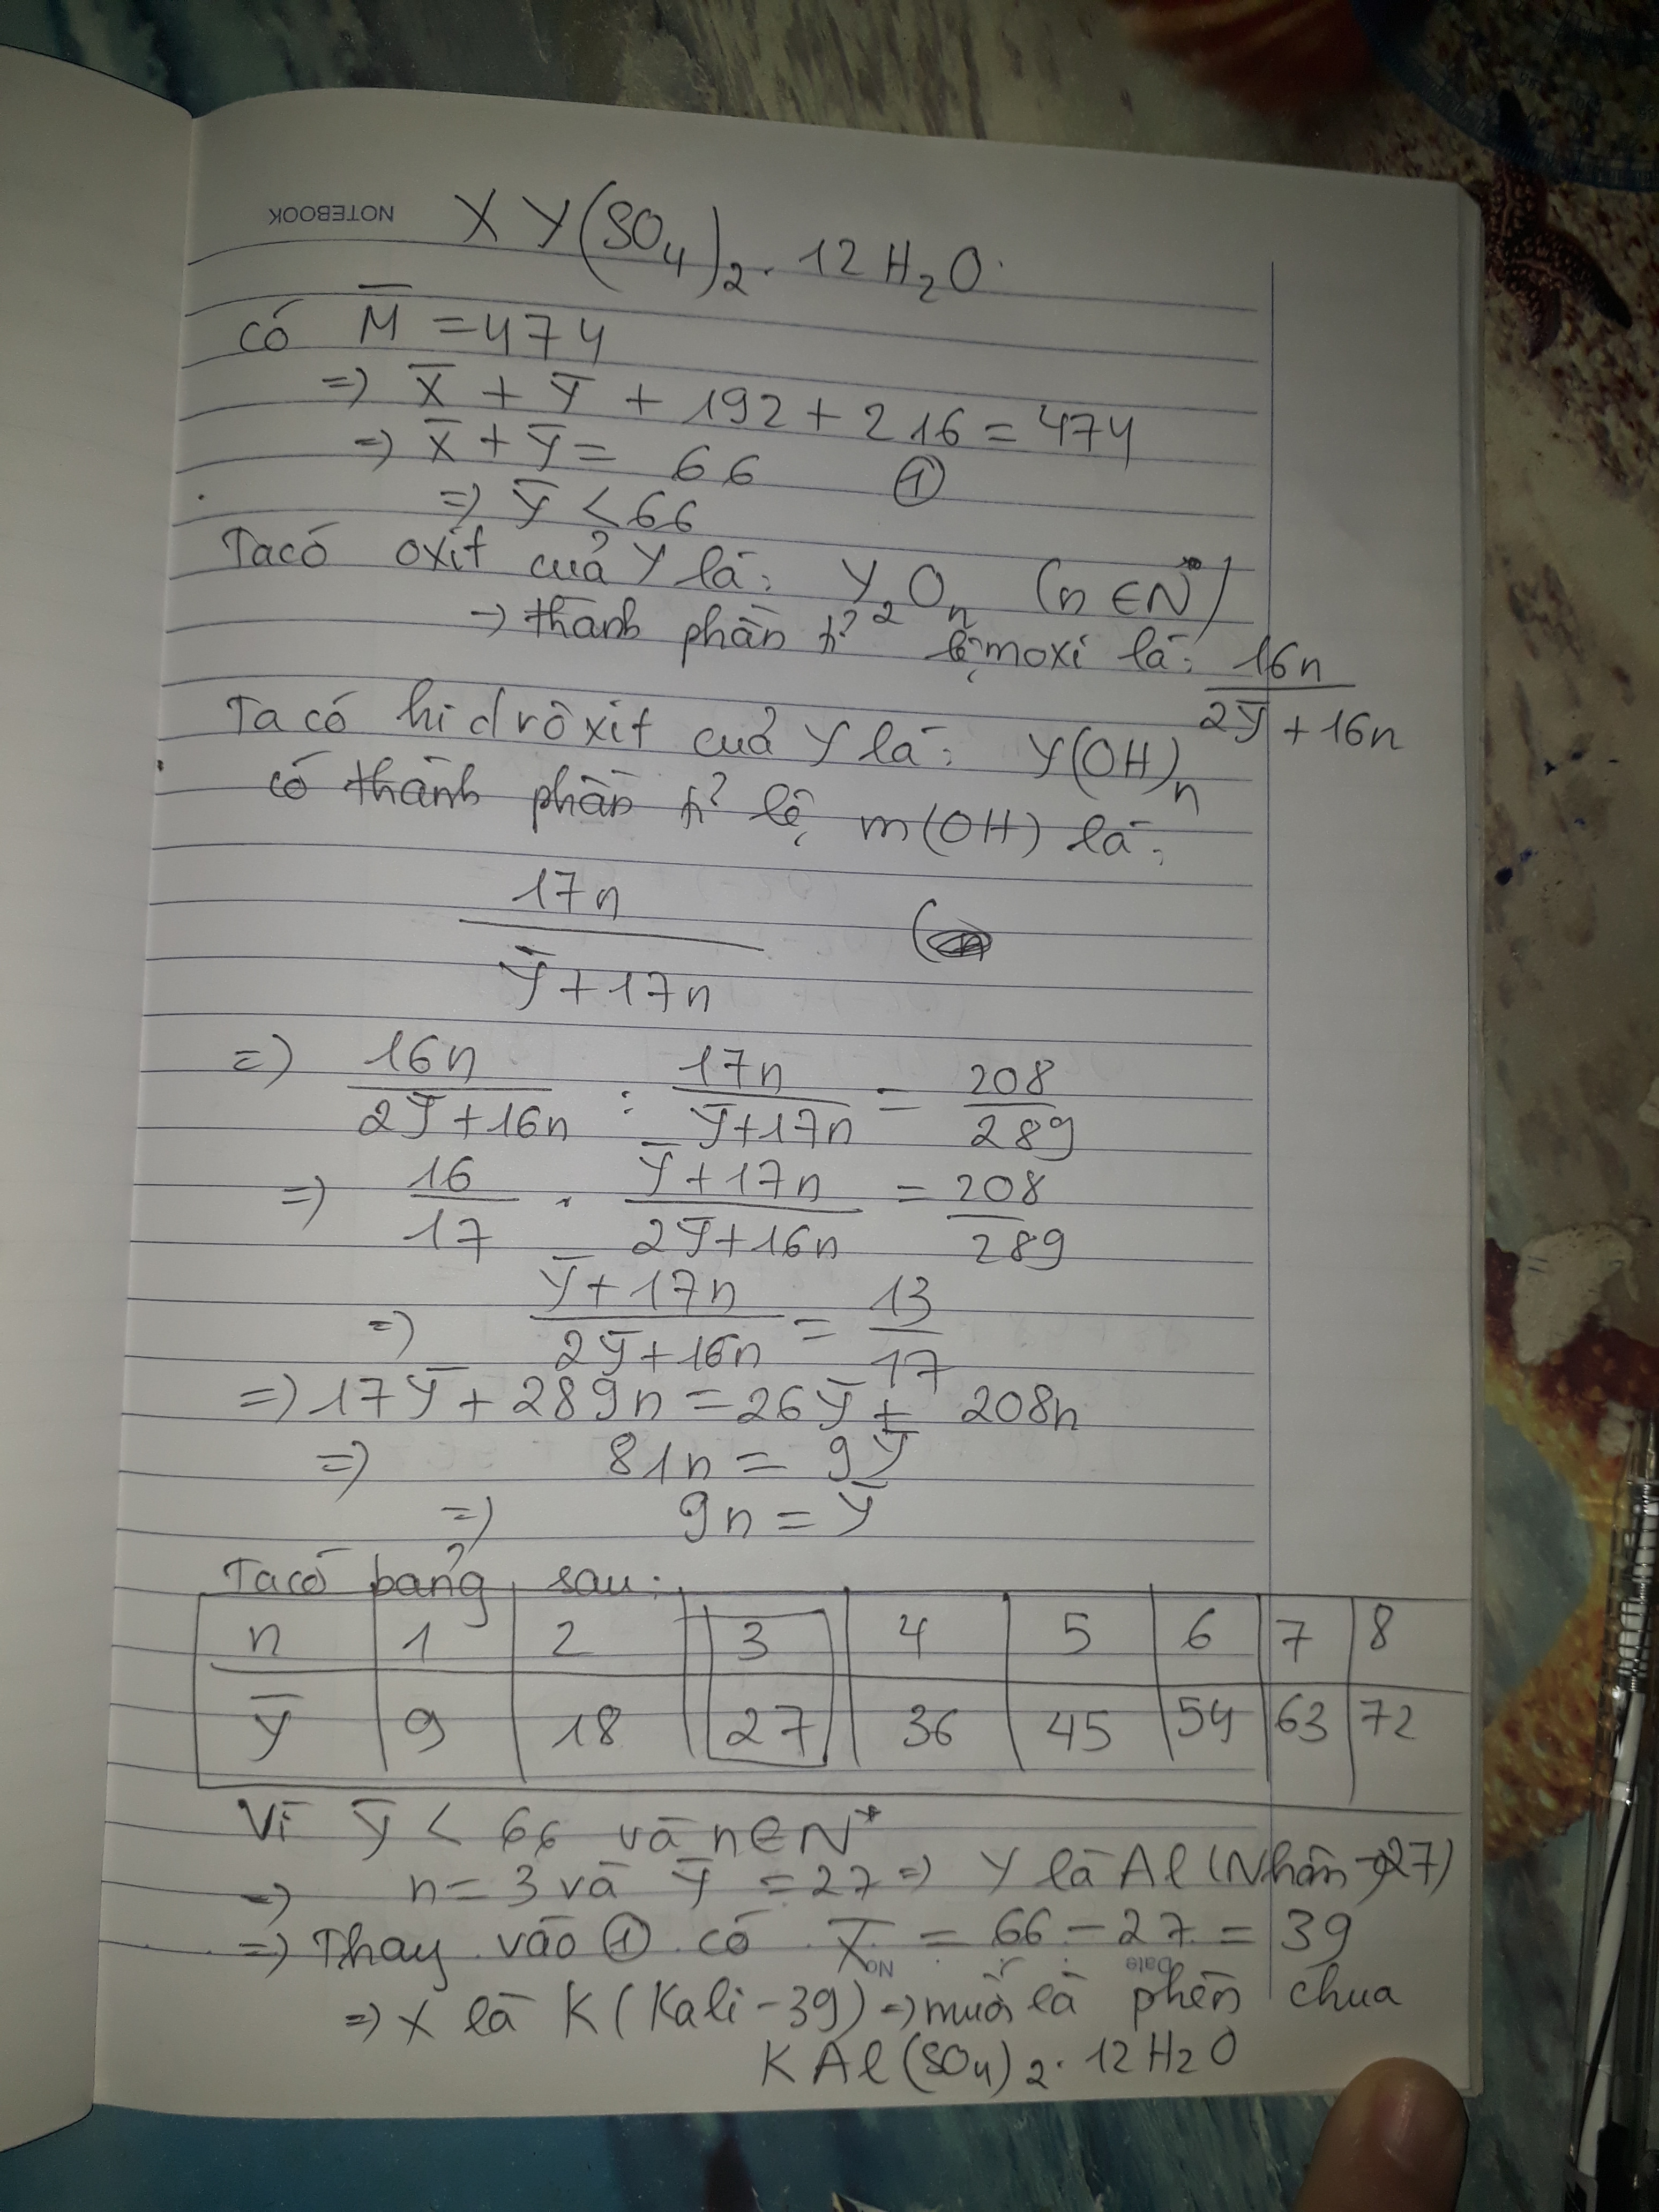 NOTEBOOK
XY(SO₄)₂ . 12H₂O.
có M̅ = 474
=> X̅ + Y̅ + 192 + 216 = 474
=> X̅ + Y̅ = 66 ①
=> Y̅ < 66
Ta có oxit cuả Y là: Y₂Oₙ (n ∈ N*)
-> thành phần tỉ lệ moxi là: 16n / (2Y̅ + 16n)
Ta có hidrôxit cuả Y là: Y(OH)ₙ
có thành phần tỉ lệ m(OH) là:
17n / (Y̅ + 17n) (
=> 16n / (2Y̅ + 16n) : 17n / (Y̅ + 17n) = 208 / 289
=> 16 / 17 . (Y̅ + 17n) / (2Y̅ + 16n) = 208 / 289
=> (Y̅ + 17n) / (2Y̅ + 16n) = 13 / 17
=> 17Y̅ + 289n = 26Y̅ + 208n
=> 81n = 9Y̅
=> 9n = Y̅
Ta có bảng sau:
n 1 2 3 4 5 6 7 8
Y̅ 9 18 27 36 45 54 63 72
Vì Y̅ < 66 và n ∈ N*
=> n = 3 và Y̅ = 27 => Y là Al (Nhôm - 27)
=> Thay vào ① có X̅ = 66 - 27 = 39
No Date
=> X là K (Kali - 39) => muối là phèn chua
KAl(SO₄)₂ . 12H₂O